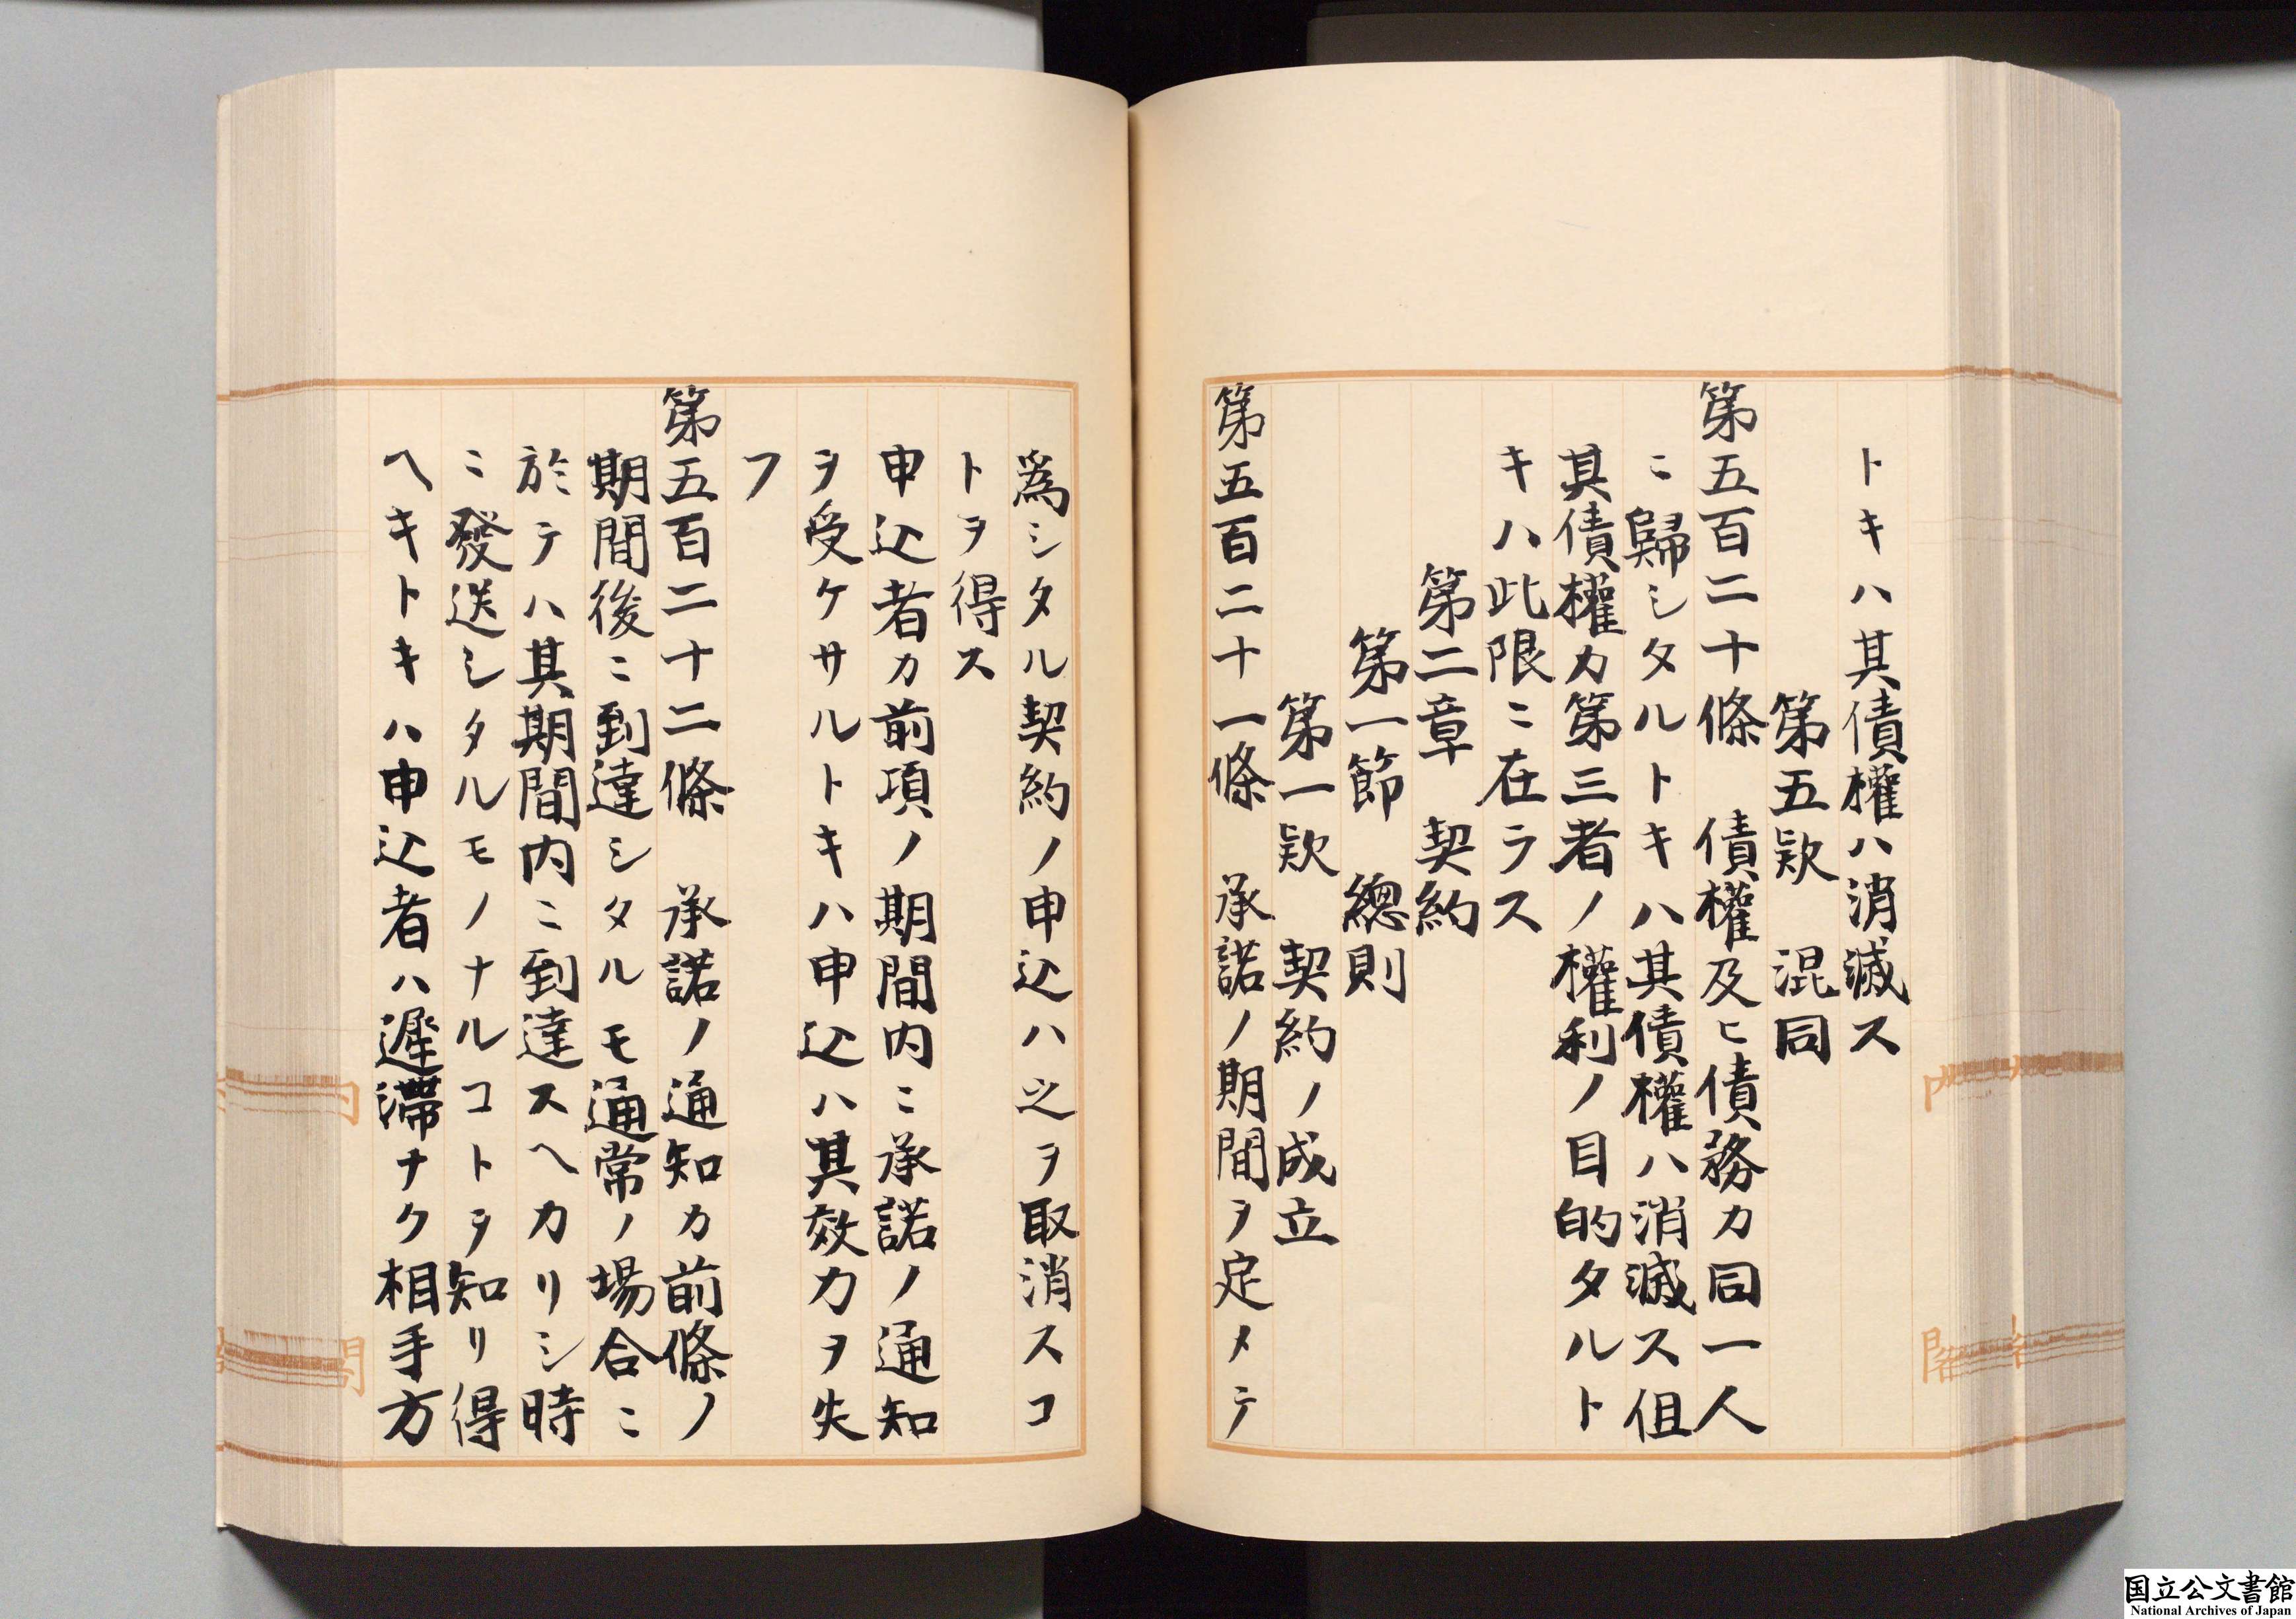 トキハ其債權ハ消滅ス
第五款 混同
第五百二十條 債權及ヒ債務カ同一人
ニ歸シタルトキハ其債權ハ消滅ス但
其債權カ第三者ノ權利ノ目的タルト
キハ此限ニ在ラス
第二章 契約
第一節 總則
第一款 契約ノ成立
第五百二十一條 承諾ノ期間ヲ定メテ
爲シタル契約ノ申込ハ之ヲ取消スコ
トヲ得ス
申込者カ前項ノ期間内ニ承諾ノ通知
ヲ受ケサルトキハ申込ハ其效力ヲ失
フ
第五百二十二條 承諾ノ通知カ前條ノ
期間後ニ到達シタルモ通常ノ場合ニ
於テハ其期間内ニ到達スヘカリシ時
ニ發送シタルモノナルコトヲ知リ得
ヘキトキハ申込者ハ遲滯ナク相手方
国立公文書館
National Archives of Japan